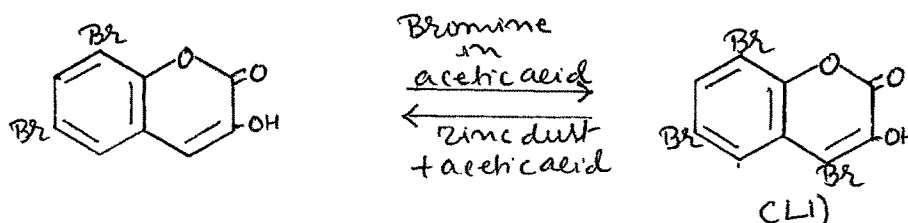 Br
O
O
OH
Br
Bromine
in
acetic acid
zinc dust
+ acetic acid
Br
O
O
OH
Br
Br
(LI)